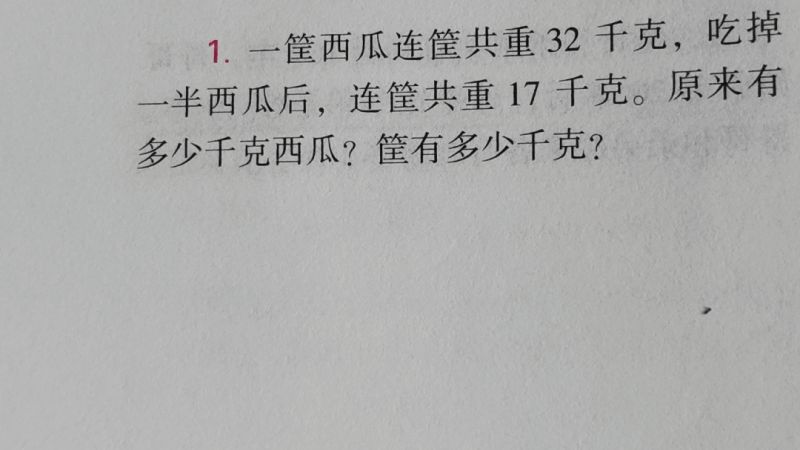 1. 一筐西瓜连筐共重 32 千克，吃掉
一半西瓜后，连筐共重 17 千克。原来有
多少千克西瓜？筐有多少千克？